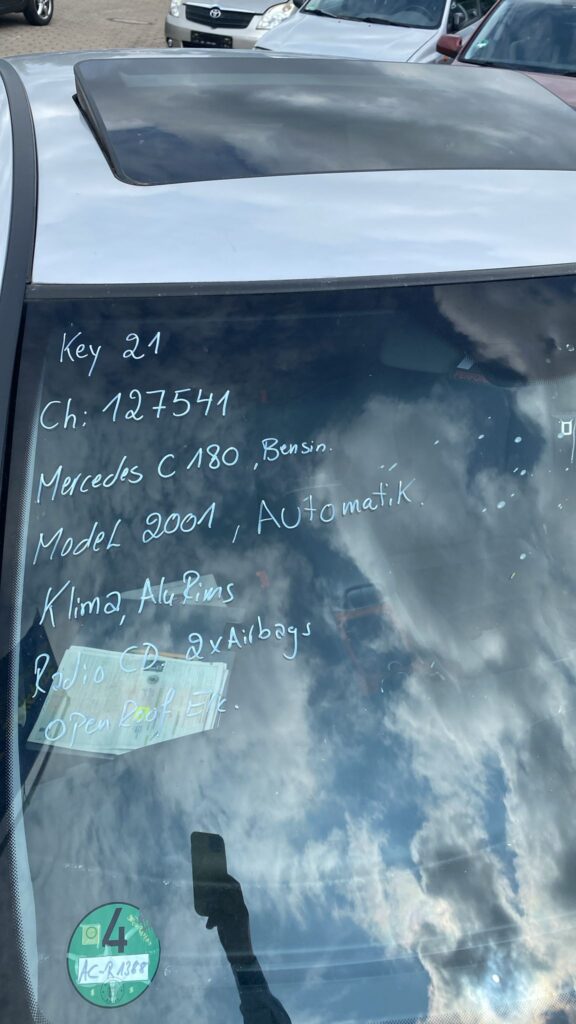 Key 21
Ch: 127541
Mercedes C 180, Bensin.
Model 2001, Automatik.
Klima, Alu Rims
Radio CD 2xAirbags
Open Roof Elk.
4
AC-R 1388